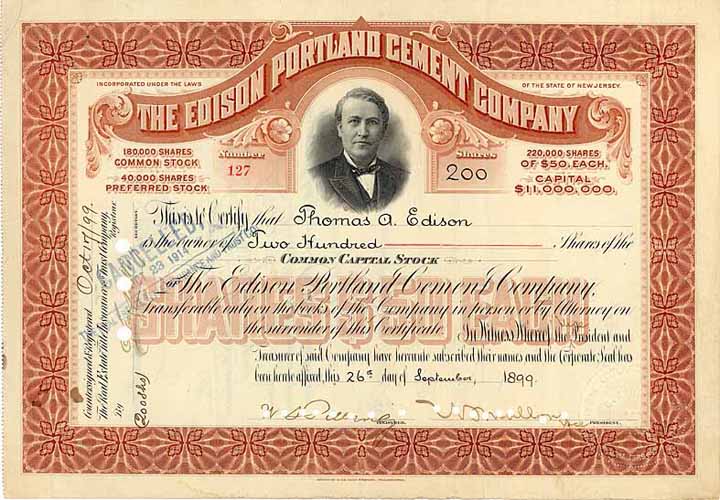 THE EDISON PORTLAND CEMENT COMPANY
INCORPORATED UNDER THE LAWS
OF THE STATE OF NEW JERSEY.
180,000 SHARES
COMMON STOCK
40,000 SHARES
PREFERRED STOCK
Number
127
Shares
200
220,000 SHARES
OF $50. EACH.
CAPITAL
$11,000,000.
This is to Certify that Thomas A. Edison
is the owner of Two Hundred Shares of the
COMMON CAPITAL STOCK
OF The Edison Portland Cement Company,
Transferable only on the books of the Company in person or by Attorney on
the surrender of this Certificate. In Witness Whereof, the President and
Treasurer of said Company have hereunto subscribed their names and the Corporate Seal has
been hereto affixed, this 26th day of September, 1899.
TREASURER.
Vice PRESIDENT.
SHARES $50 EACH
CANCELLED
23 1914
Countersigned & Registered Oct 17/99
The Real Estate Title Insurance and Trust Company,
Registrar
By
200 shs